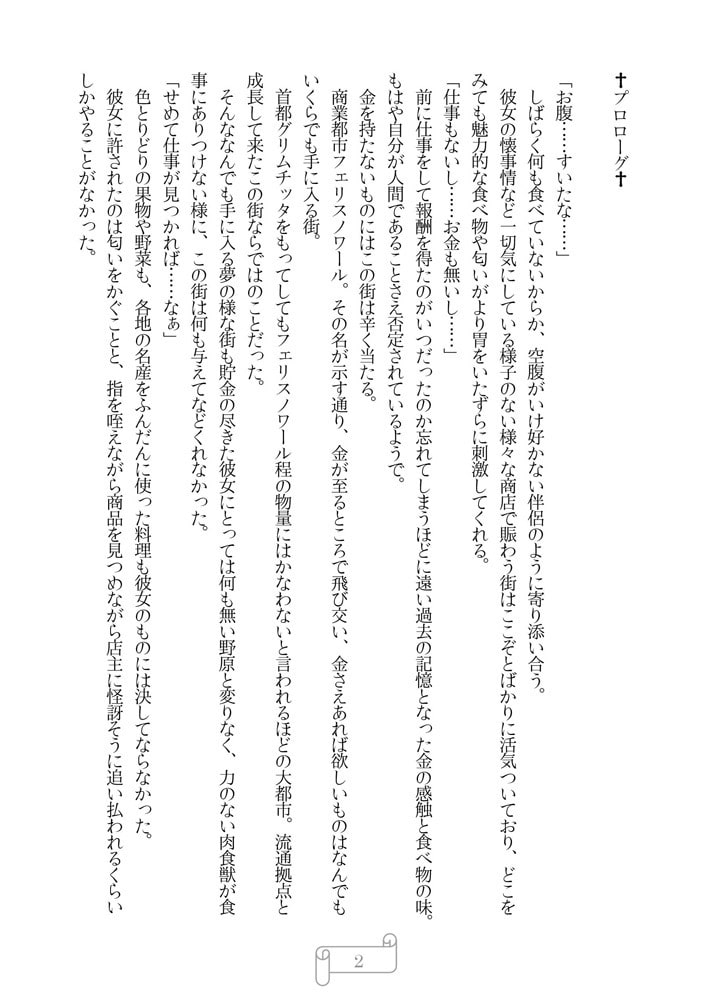 ✝プロローグ✝
「お腹……すいたな……」
　しばらく何も食べていないからか、空腹がいけ好かない伴侶のように寄り添い合う。
　彼女の懐事情など一切気にしている様子のない様々な商店で賑わう街はここぞとばかりに活気ついており、どこを
みても魅力的な食べ物や匂いがより胃をいたずらに刺激してくれる。
「仕事もないし……お金も無いし……」
　前に仕事をして報酬を得たのがいつだったのか忘れてしまうほどに遠い過去の記憶となった金の感触と食べ物の味。
もはや自分が人間であることさえ否定されているようで。
　金を持たないものにはこの街は辛く当たる。
　商業都市フェリスノワール。その名が示す通り、金が至るところで飛び交い、金さえあれば欲しいものはなんでも
いくらでも手に入る街。
　首都グリムチッタをもってしてもフェリスノワール程の物量にはかなわないと言われるほどの大都市。流通拠点と
成長して来たこの街ならではのことだった。
　そんななんでも手に入る夢の様な街も貯金の尽きた彼女にとっては何も無い野原と変りなく、力のない肉食獣が食
事にありつけない様に、この街は何も与えてなどくれなかった。
「せめて仕事が見つかれば……なぁ」
　色とりどりの果物や野菜も、各地の名産をふんだんに使った料理も彼女のものには決してならなかった。
　彼女に許されたのは匂いをかぐことと、指を咥えながら商品を見つめながら店主に怪訝そうに追い払われるくらい
しかやることがなかった。
2